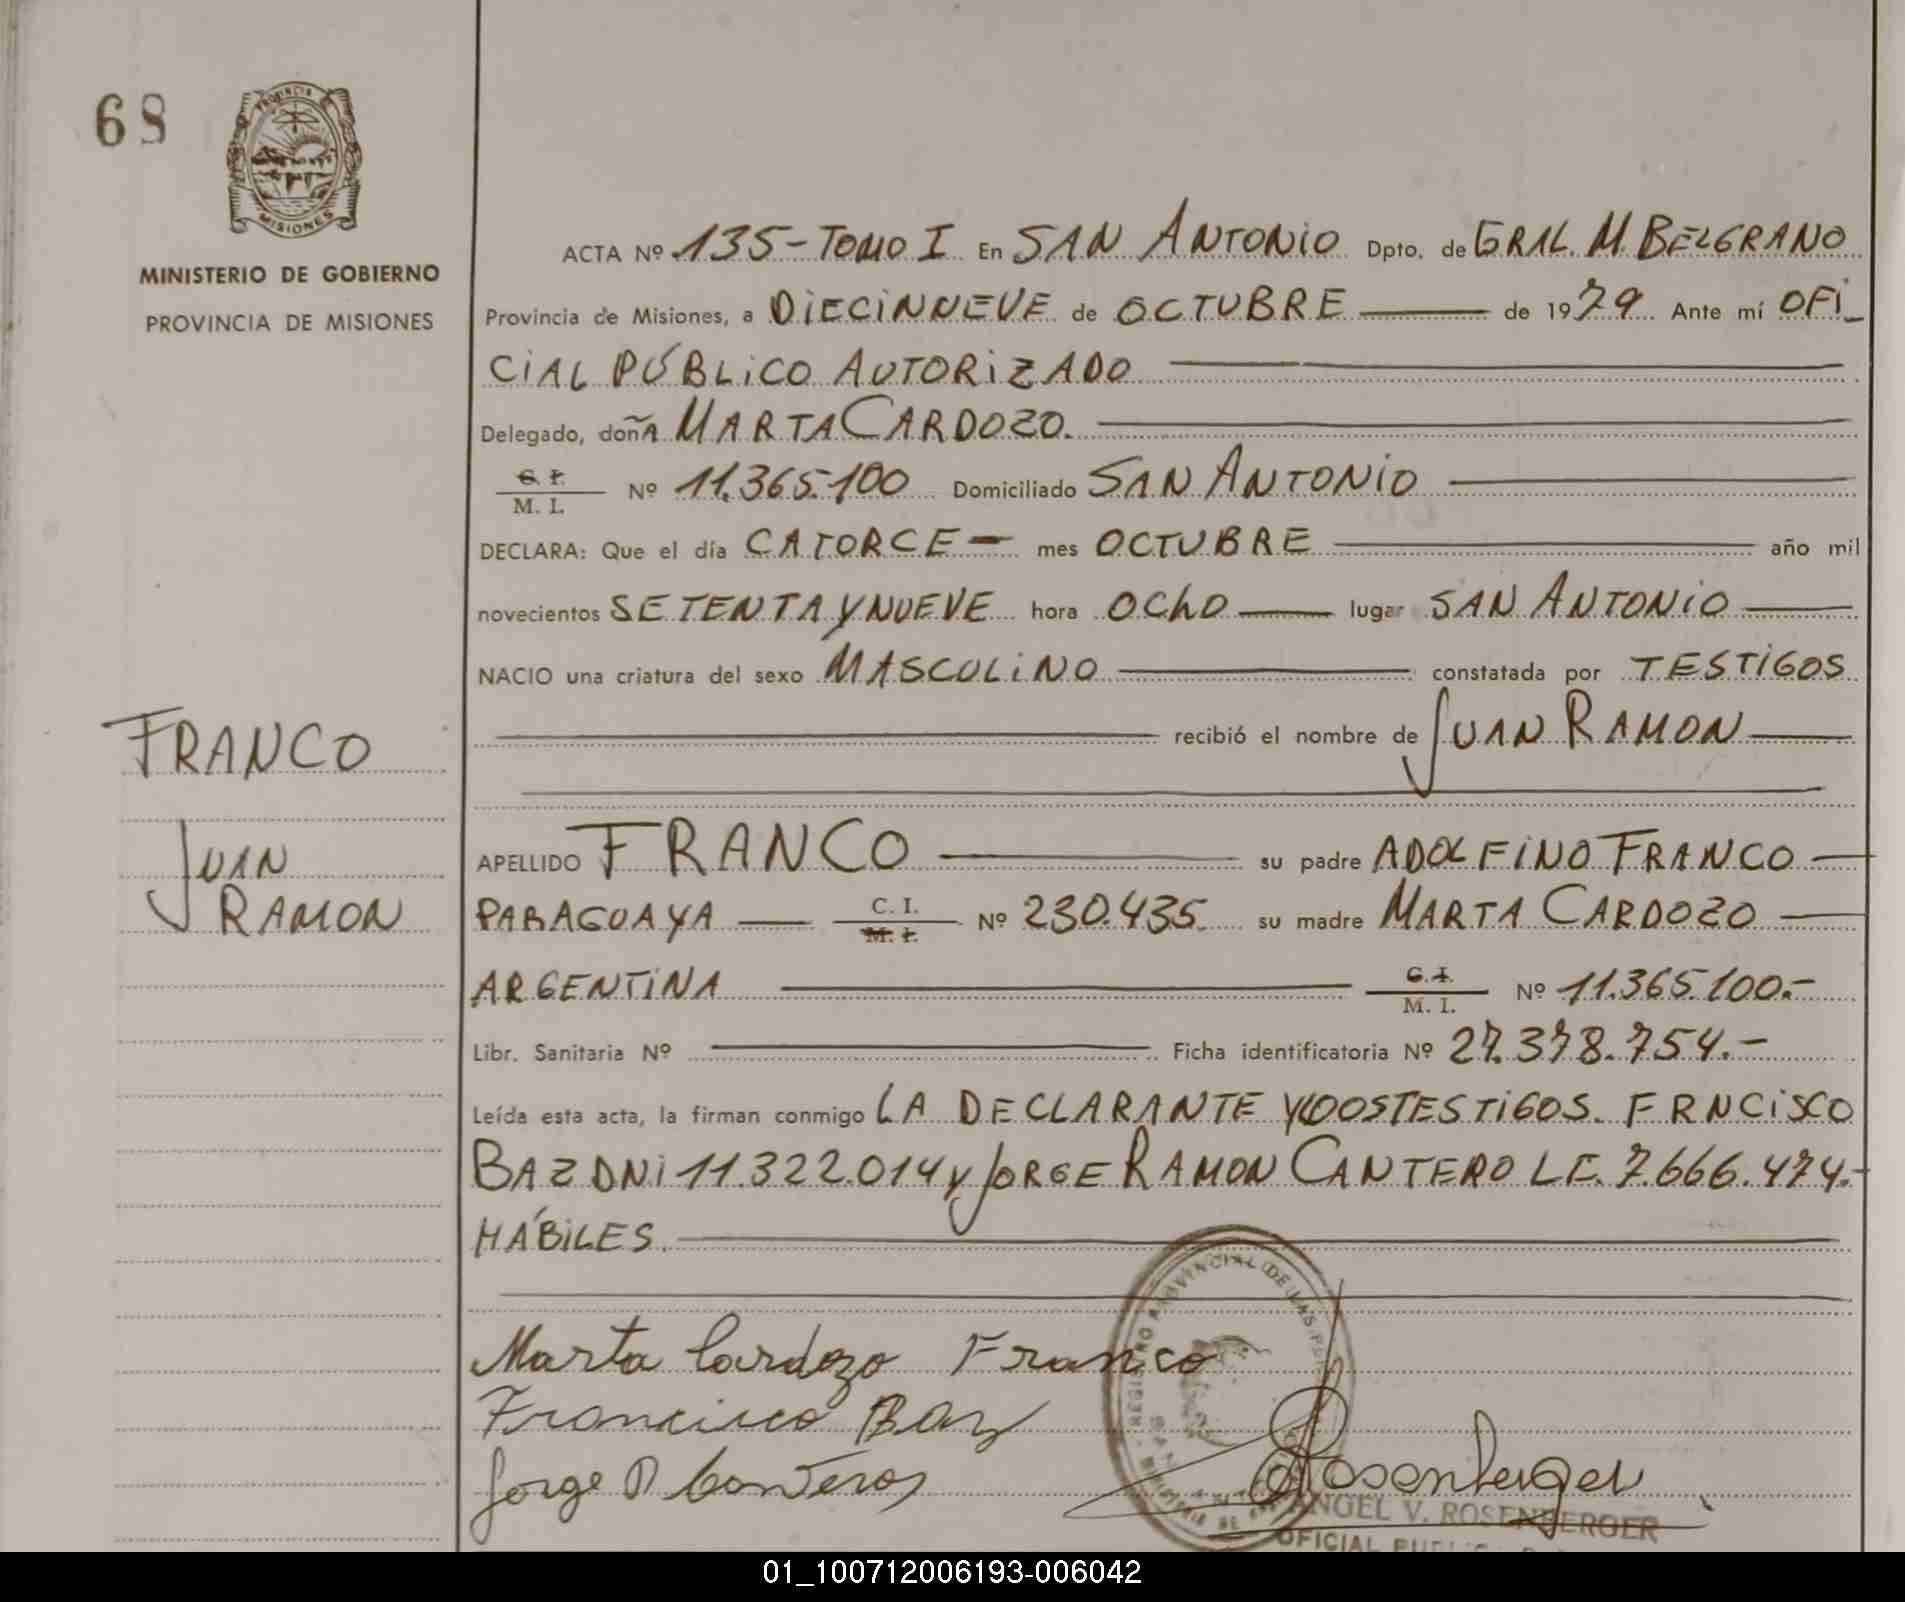 68
PROVINCIA
MISIONES
MINISTERIO DE GOBIERNO
PROVINCIA DE MISIONES
ACTA Nº 135-TOMO I En SAN ANTONIO Dpto. de GRAL. M. BELGRANO
Provincia de Misiones, a DIECINUEVE de OCTUBRE de 1979 Ante mí OFI_
CIAL PÚBLICO AUTORIZADO
Delegado, doñA MARTA CARDOZO.
C. I.
M. I. Nº 11.365.100 Domiciliado SAN ANTONIO
DECLARA: Que el día CATORCE - mes OCTUBRE año mil
novecientos SETENTA Y NUEVE hora OCHO lugar SAN ANTONIO
NACIO una criatura del sexo MASCULINO constatada por TESTIGOS
recibió el nombre de JUAN RAMON
FRANCO
JUAN
RAMON
APELLIDO FRANCO su padre ADOLFINO FRANCO
PARAGUAYA C. I. M. I. Nº 230.435. su madre MARTA CARDOZO
ARGENTINA C. I. M. I. Nº 11.365.100.-
Libr. Sanitaria Nº Ficha identificatoria Nº 27.378.754.-
Leída esta acta, la firman conmigo LA DECLARANTE Y LOOS TESTIGOS. FRNCISCO
BAZ DNI 11.322.014 y JORGE RAMON CANTERO LE. 7.666.474.-
HÁBILES.
Marta Cardozo Franco
Francisco Baz
Jorge R Canteros
Rosenberger
ANGEL V. ROSENBERGER
OFICIAL
01_100712006193-006042